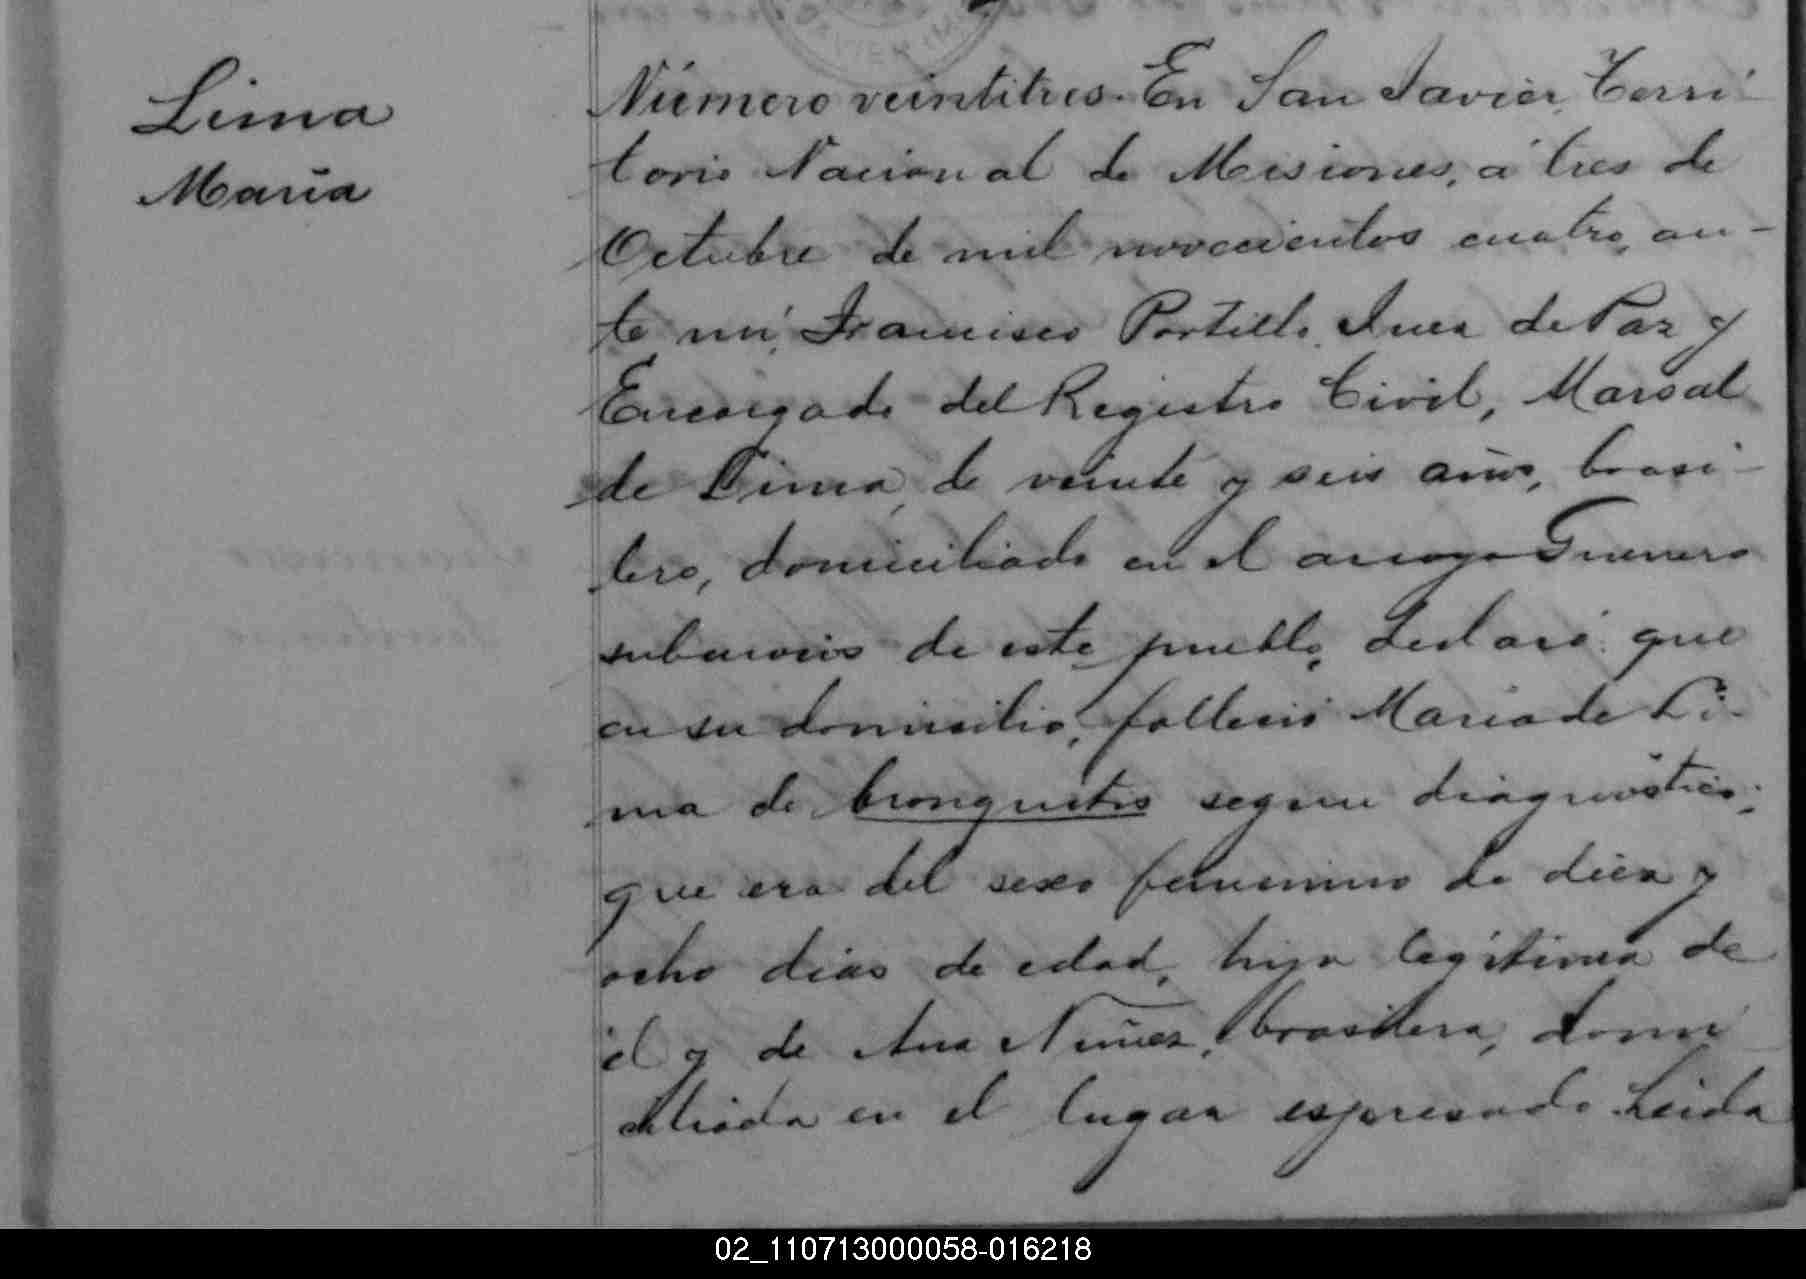 Lima
Maria
Número veintitres. En San Javier, Terri-
torio Nacional de Misiones, á tres de
Octubre de mil novecientos cuatro, an-
te mí, Francisco Portillo, Juez de Paz y
Encargado del Registro Civil, Marsal
de Lima, de veinte y seis años, brasi-
lero, domiciliado en el arroyo Guerrero
suburvios de este pueblo, declaró: que
en su domicilio, falleció Maria de Li-
ma de bronquitis segun diagnóstico;
que era del sexo femenino de diez y
ocho dias de edad, hija legítima de
él y de Ana Nuñez, brasilera, domi
ciliada en el lugar espresado. Leida
02_110713000058-016218